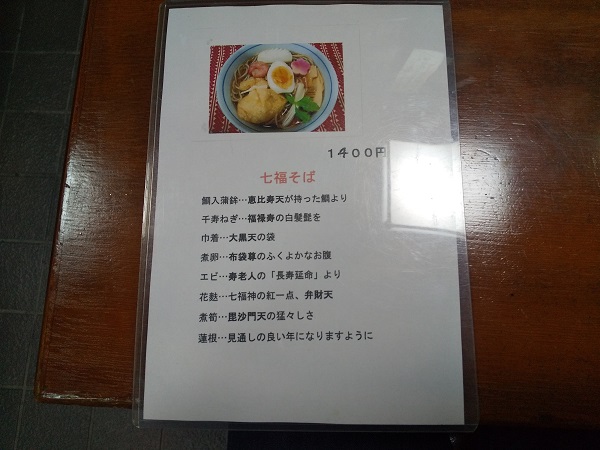 1400円
七福そば
鯛入蒲鉾…恵比寿天が持った鯛より
千寿ねぎ…福禄寿の白髪髭を
巾着…大黒天の袋
煮卵…布袋尊のふくよかなお腹
エビ…寿老人の「長寿延命」より
花麩…七福神の紅一点、弁財天
煮筍…毘沙門天の猛々しさ
蓮根…見通しの良い年になりますように